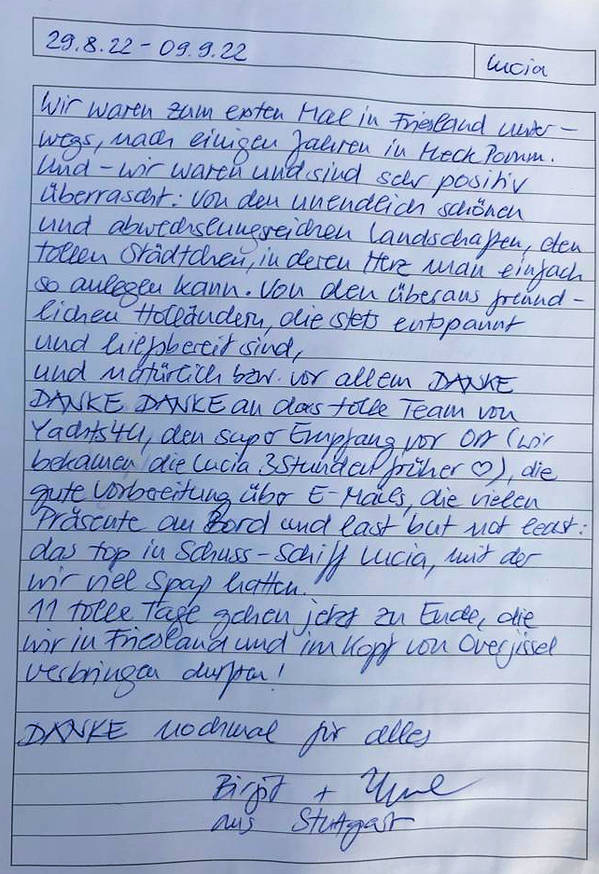 29.8.22 - 09.9.22
Lucia
Wir waren zum ersten Mal in Friesland unter-
wegs, nach einigen Jahren in Meck Pomm.
Und - wir waren und sind sehr positiv
überrascht: Von den unendlich schönen
und abwechslungsreichen Landschaften, den
tollen Städtchen, in deren Herz man einfach
so anlegen kann. Von den überaus freund-
lichen Holländern, die stets entspannt
und hilfsbereit sind,
und natürlich bzw. vor allem DANKE
DANKE DANKE an das tolle Team von
Yachts4U, den super Empfang vor Ort (wir
bekamen die Lucia 3 Stunden früher ♡), die
gute Vorbereitung über E-Mails, die vielen
Präsente an Bord und last but not least:
das top in Schuss-Schiff Lucia, mit der
wir viel Spaß hatten.
11 tolle Tage gehen jetzt zu Ende, die
wir in Friesland und im Kopf von Overjissel
verbringen durften!
DANKE nochmal für alles
Birgit +
aus Stuttgart